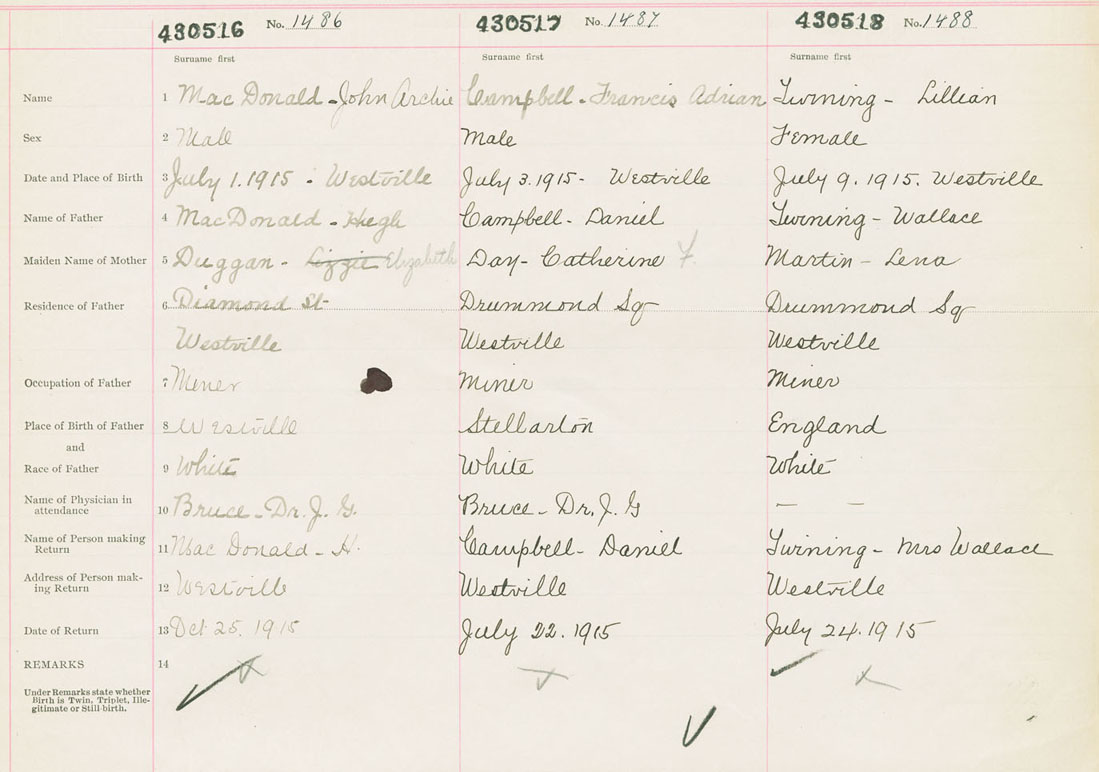 430516 No. 1486 430517 No. 1487 430518 No. 1488
Surname first Surname first Surname first
Name 1 MacDonald - John Archie Campbell - Francis Adrian Twining - Lillian
Sex 2 Male Male Female
Date and Place of Birth 3 July 1. 1915 - Westville July 3. 1915 - Westville July 9. 1915. Westville
Name of Father 4 MacDonald - Hugh Campbell - Daniel Twining - Wallace
Maiden Name of Mother 5 Duggan - Lizzie Elizabeth Day - Catherine F. Martin - Lena
Residence of Father 6 Diamond St Drummond Sq Drummond Sq
Westville Westville Westville
Occupation of Father 7 Miner Miner Miner
Place of Birth of Father 8 Westville Stellarton England
and
Race of Father 9 White White White
Name of Physician in
attendance 10 Bruce - Dr. J. G. Bruce - Dr. J. G — —
Name of Person making
Return 11 MacDonald - H. Campbell - Daniel Twining - Mrs Wallace
Address of Person mak-
ing Return 12 Westville Westville Westville
Date of Return 13 Oct 25. 1915 July 22. 1915 July 24. 1915
REMARKS 14
Under Remarks state whether
Birth is Twin, Triplet, Ille-
gitimate or Still-birth.